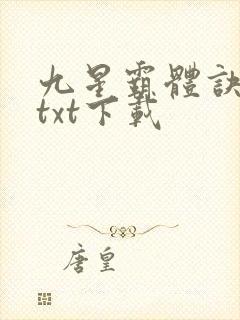 九星霸體訣
txt下載
唐皇